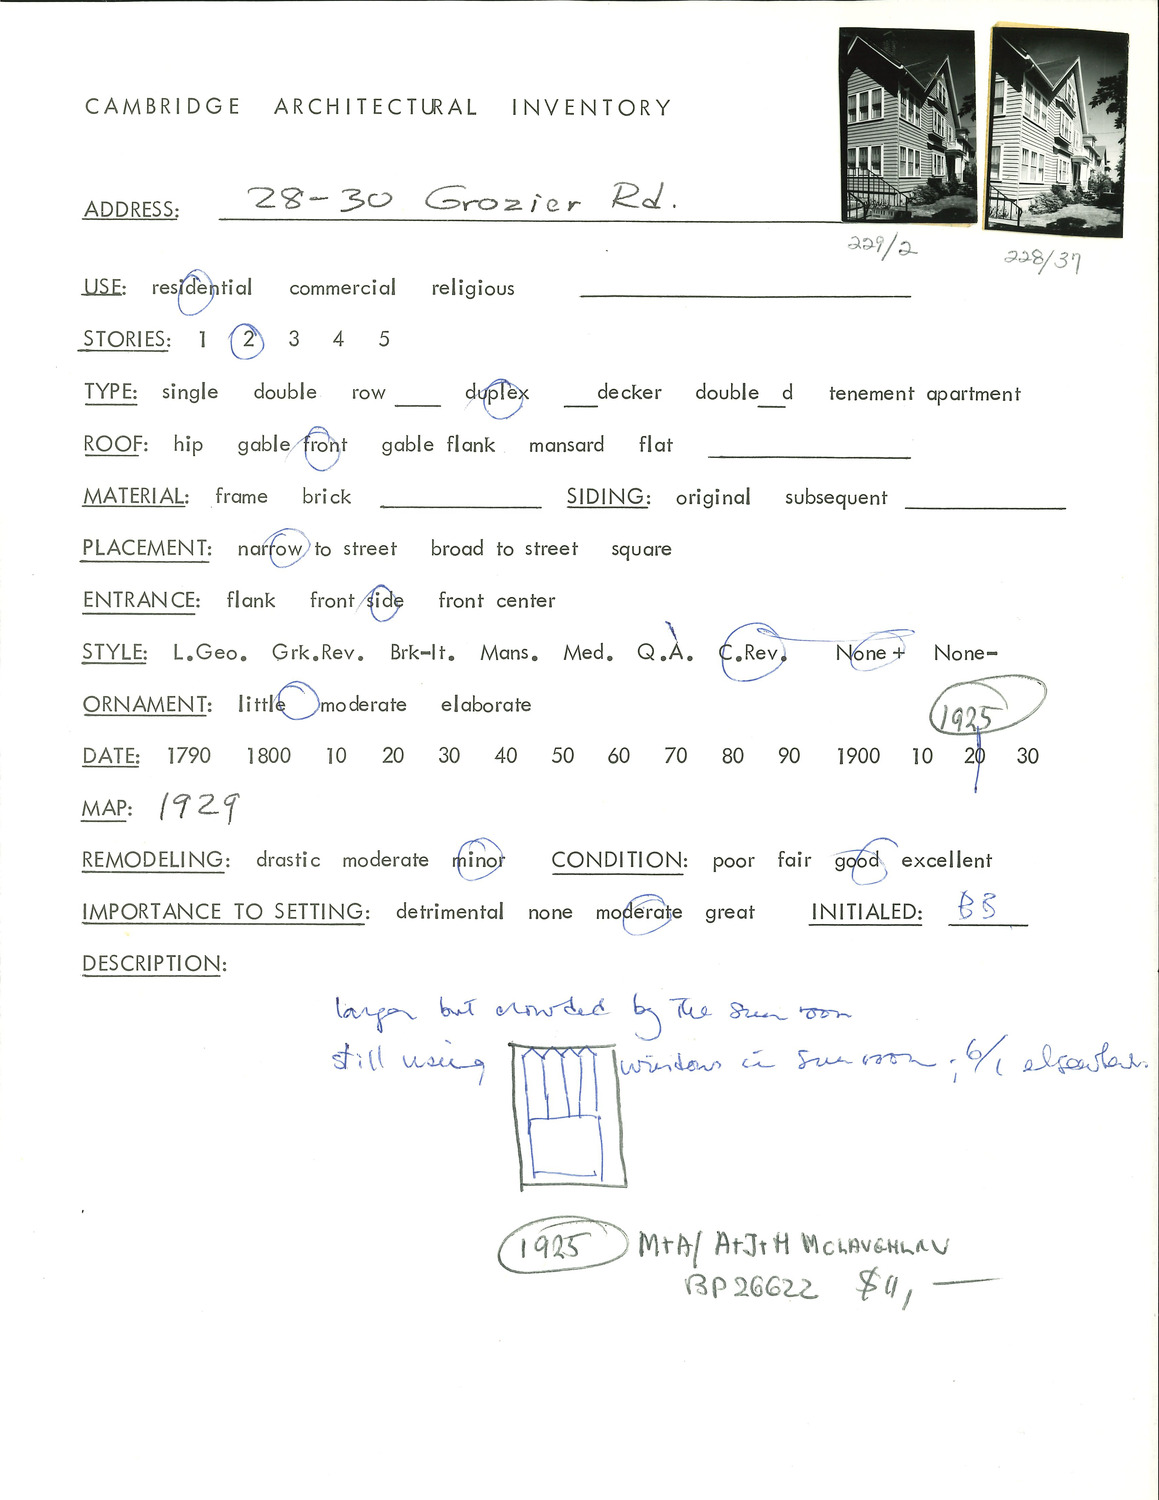 CAMBRIDGE ARCHITECTURAL INVENTORY
ADDRESS: 28-30 Grozier Rd.
229/2 228/37
USE: residential commercial religious
STORIES: 1 2 3 4 5
TYPE: single double row ___ duplex ___decker double__d tenement apartment
ROOF: hip gable front gable flank mansard flat
MATERIAL: frame brick SIDING: original subsequent
PLACEMENT: narrow to street broad to street square
ENTRANCE: flank front side front center
STYLE: L.Geo. Grk.Rev. Brk-It. Mans. Med. Q.A. C.Rev. None+ None-
ORNAMENT: little moderate elaborate
1925
DATE: 1790 1800 10 20 30 40 50 60 70 80 90 1900 10 20 30
MAP: 1929
REMODELING: drastic moderate minor CONDITION: poor fair good excellent
IMPORTANCE TO SETTING: detrimental none moderate great INITIALED: BB
DESCRIPTION:
larger but crowded by the sun room
still using windows in sun room; 6/1 elsewhere.
1925 M+A/ A+J+H McLAUGHLAN
BP26622 $11,—